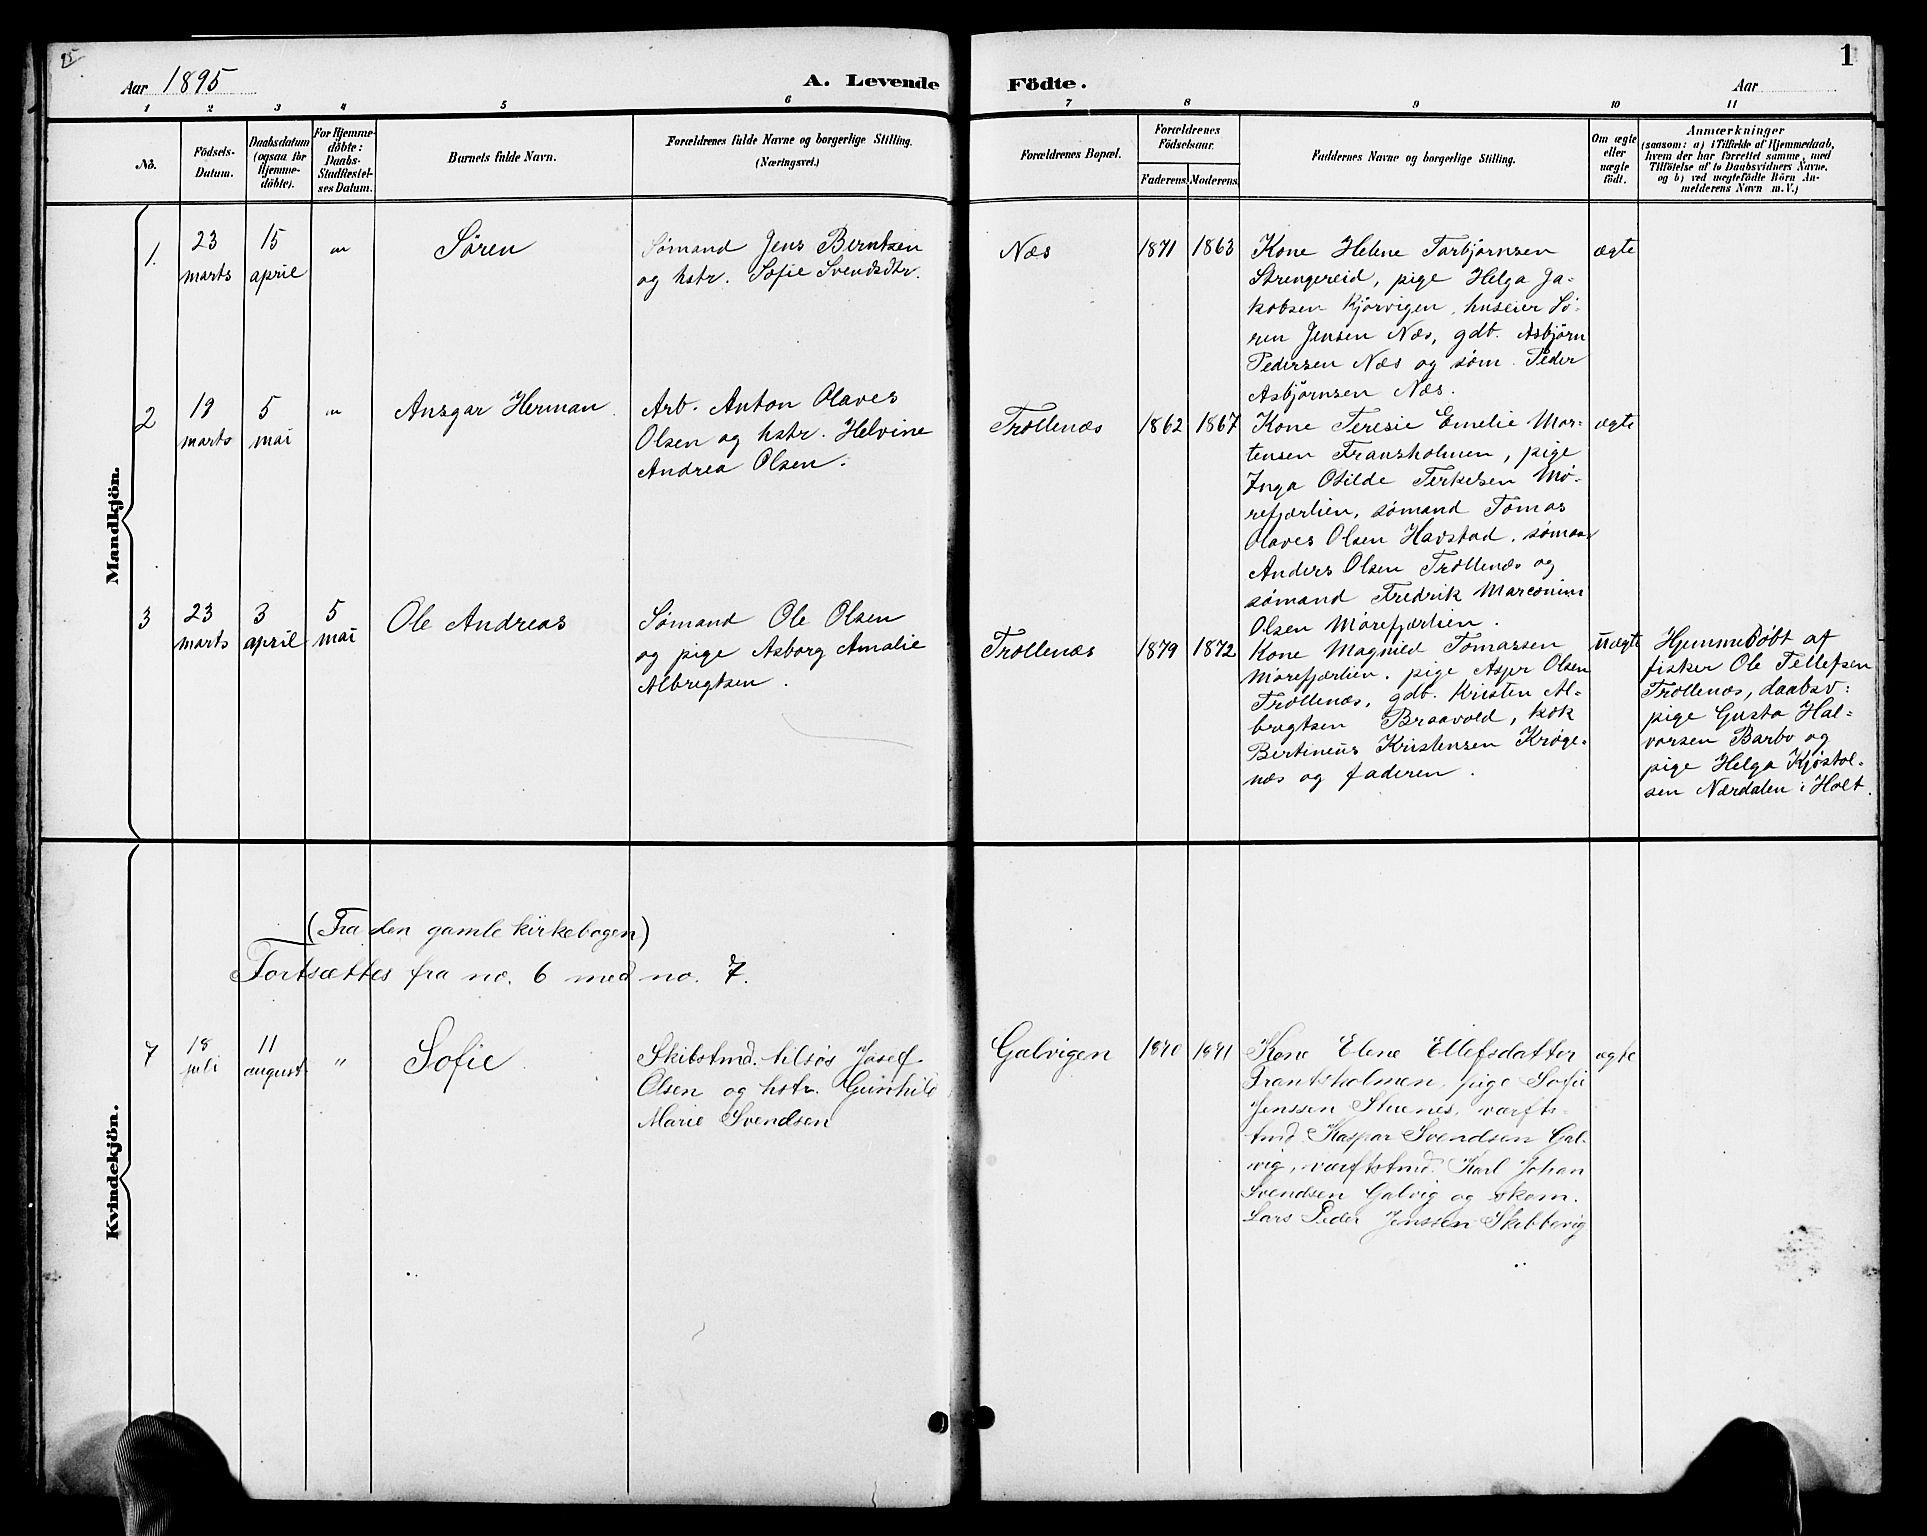 95
Aar 1895
A. Levende
Födte.
Aar
1
1
2
3
4
5
6
7
8
9
10
11
No.
Födsels-
Datum.
Daabsdatum
(ogsaa for
Hjemme-
döbte).
For Hjemme-
döbte:
Daabs-
Stadfæstel-
ses Datum.
Barnets fulde Navn.
Forældrenes fulde Navne og borgerlige Stilling.
(Næringsvei.)
Forældrenes Bopæl.
Forældrenes
Födselsaar.
Faderens.
Moderens.
Faddernes Navne og borgerlige Stilling.
Om ægte
eller
uægte
födt.
Anmærkninger
(saasom: a) i Tilfælde af Hjemmedaab,
hvem der har forrettet samme, med
Tilföielse af to Daabsvidners Navne,
og b) ved uægtefödte Börn An-
melderens Navn m. V.)
Mandkjön.
1.
23
marts
15
april
"
Søren
Sømand Jens Berntsen
og hstr. Sofie Svendsdtr.
Næs
1871
1863
Kone Helene Torbjørnsen
Strengereid, pige Helga Ja-
kobsen Kjørvigen, huseier Sø-
ren Jensen Næs, gdt. Asbjørn
Pedersen Næs og søm. Peder
Asbjørnsen Næs.
ægte
2
19
marts
5
mai
"
Ansgar Herman
Arb. Anton Olaves
Olsen og hstr. Helvine
Andrea Olsen.
Trollenæs
1862
1867
Kone Teresie Emelie Mor-
tensen Fransholmen, pige
Inga Otilde Terkelsen Mø-
refjærlien, sømand Tomas
Olaves Olsen Havstad, sømand
Anders Olsen Trollenæs og
sømand Fredrik Marconius
Olsen Mørefjærlien.
ægte
3
23
marts
3
april
5
mai
Ole Andreas
Sømand Ole Olsen
og pige Asborg Amalie
Albregtsen.
Trollenæs
1879
1872
Kone Magnild Tomassen
Mørefjærlien, pige Asper Olsen
Trollenæs, gdt. Kristen Al-
bregtsen Braavold, kok
Bertineus Kristensen Krøge-
næs og faderen.
uægte
Hjemmedøbt af
fisker Ole Tellefsen
Trollenæs, daabsv:
pige Gusta Hal-
vorsen Barbo og
pige Helga Kjøstol-
sen Nærdalen i Holt.
Kvindekjön.
(Fra den gamle kirkebogen)
Fortsættes fra no. 6 med no. 7.
7
18
juli
11
august
"
Sofie
Skibstmd. tilsøs Josef
Olsen og hstr. Gunhild
Marie Svendsen
Galvigen
1840
1841
Kone Elene Ellefsdatter
Frantsholmen, pige Sofie
Jenssen Stuenes, værfts-
tmd. Kaspar Svendsen Gal-
vig, værftstmd. Karl Johan
Svendsen Galvig og skom.
Lars Peder Jenssen Skibbevig
ægte